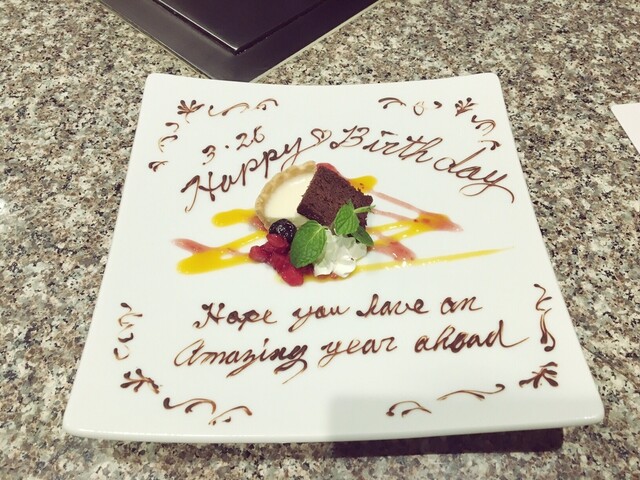 3.26
Happy♡Birthday
Hope you have an
Amazing year ahead